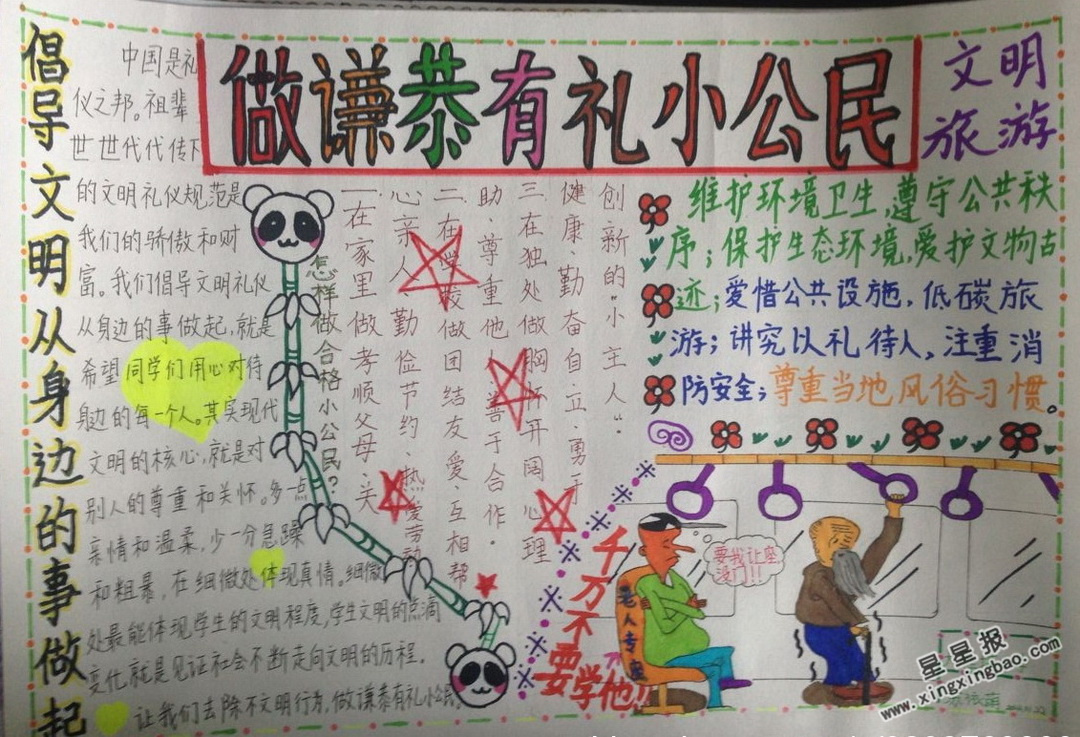 倡导文明从身边的事做起
做谦恭有礼小公民
文明
旅游
中国是礼
仪之邦。祖辈
世世代代传下
的文明礼仪规范是
我们的骄傲和财
富。我们倡导文明礼仪
从身边的事做起,就是
希望同学们用心对待
身边的每一个人。其实现代
文明的核心,就是对
别人的尊重和关怀。多一点
亲情和温柔,少一分急躁
和粗暴,在细微处体现真情。细微
处最能体现学生的文明程度,学生文明的点滴
变化就是见证社会不断走向文明的历程。
让我们去除不文明行为,做谦恭有礼小公民。
怎样做合格小公民?
一、在家里做孝顺父母、关
心亲人、勤俭节约、热爱劳动
二、在学校做团结友爱、互相帮
助、尊重他人、善于合作.
三、在独处做胸怀开阔、心理
健康、勤奋自立、勇于
创新的“小主人”
维护环境卫生,遵守公共秩
序;保护生态环境,爱护文物古
迹;爱惜公共设施,低碳旅
游;讲究以礼待人,注重消
防安全;尊重当地风俗习惯。
千万不要学他!!
要我让座
没门!!!
老人专座
星星报
www.xingxingbao.com